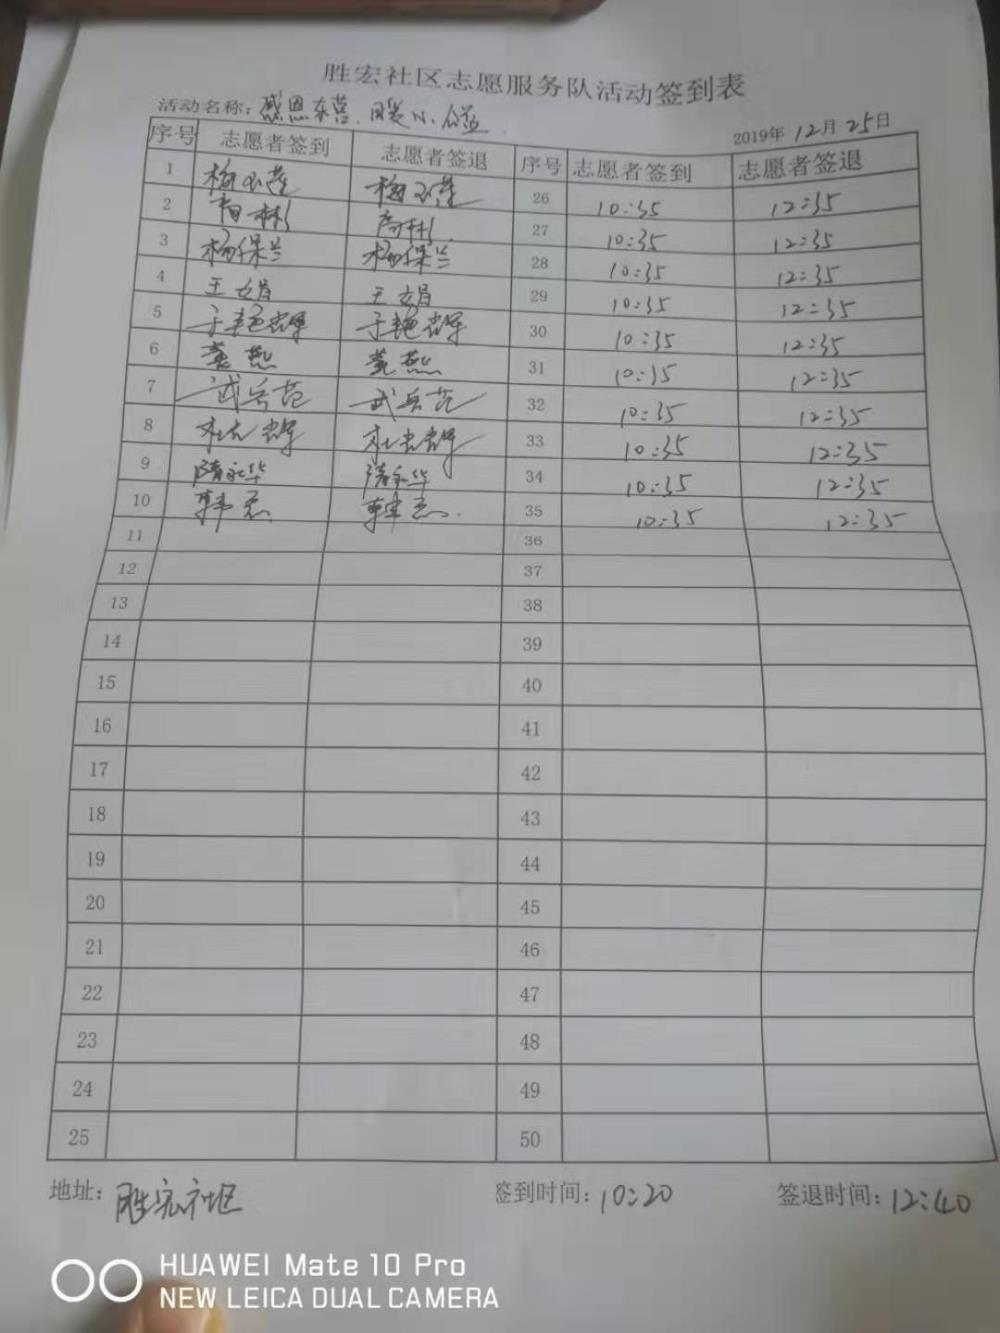 胜宏社区志愿服务队活动签到表
活动名称：感恩冬
2019年 12月 25日
序号 志愿者签到 志愿者签退 序号 志愿者签到 志愿者签退
1 26 10:35 12:35
2 27 10:35 12:35
3 杨保兰 杨保兰 28 10:35 12:35
4 王娟 王娟 29 10:35 12:35
5 于艳辉 于艳辉 30 10:35 12:35
6 燕 燕 31 10:35 12:35
7 武兵范 武兵范 32 10:35 12:35
8 33 10:35 12:35
9 隋永华 隋永华 34 10:35 12:35
10 韩 韩 35 10:35 12:35
11 36
12 37
13 38
14 39
15 40
16 41
17 42
18 43
19 44
20 45
21 46
22 47
23 48
24 49
25 50
地址：胜宏社区 签到时间：10:20 签退时间：12:40
HUAWEI Mate 10 Pro
NEW LEICA DUAL CAMERA